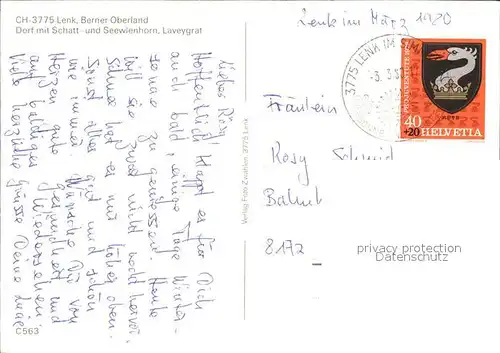 CH-3775 Lenk, Berner Oberland
Dorf mit Schatt- und Seewlenhorn, Laveygrat
Lenk im März 1980
3775 LENK IM SIM
-3. 3. 80
40
+20 HELVETIA
Fräulein
Rosy Schmid
Bahnt
8172
privacy protection
Datenschutz
Verlag Foto Zwahlen, 3775 Lenk
Liebes Rösy
Hoffentlich klappt es für Dich
auch bald, einige Tage Winter-
sonne zu geniessen. Heute
will sie zwar nicht recht hervor.
Schnee hat es nur höher oben.
Sonst alles gut und schön
wie immer. Wünsche Dir von
Herzen gute Gesundheit und
auf baldiges Wiedersehen.
Viele herzliche Grüsse Deine
C563